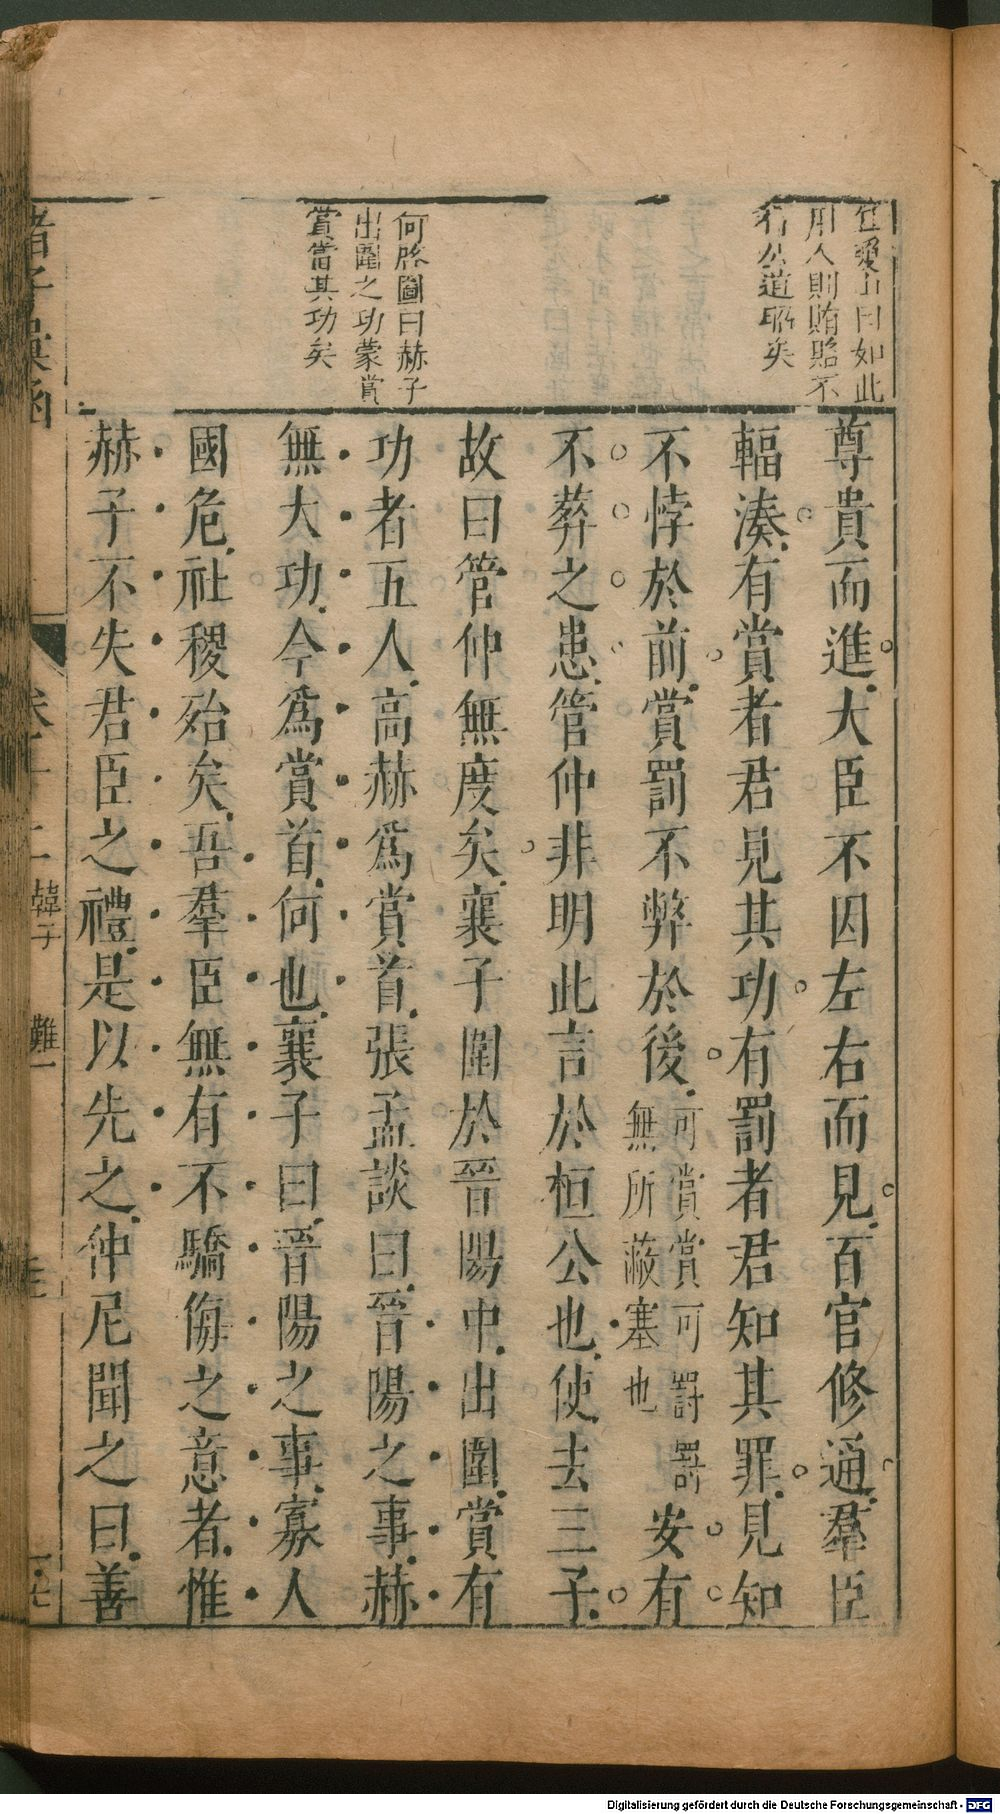 愛山曰如此
用人則賄賂不
行公道昭矣
何啓圖曰赫子
出圍之功蒙賞
賞當其功矣
尊貴而進大臣不因左右而見百官修通羣臣
輻湊有賞者君見其功有罰者君知其罪見知
不悖於前賞罰不弊於後可賞賞可罰罰無所蔽塞也安有
不葬之患管仲非明此言於桓公也使去三子
故曰管仲無度矣襄子圍於晉陽中出圍賞有
功者五人高赫爲賞首張孟談曰晉陽之事赫
無大功今爲賞首何也襄子曰晉陽之事寡人
國危社稷殆矣吾羣臣無有不驕侮之意者惟
赫子不失君臣之禮是以先之仲尼聞之曰善
諸子彙函
卷十二
韓子
難一
Digitalisierung gefördert durch die Deutsche Forschungsgemeinschaft - DFG